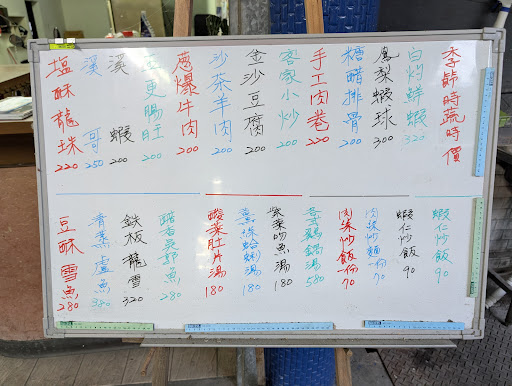 季節時蔬時價
白灼鮮蝦 320
鳳梨蝦球 300
糖醋排骨 200
手工肉卷 220
客家小炒 200
金沙豆腐 200
沙茶羊肉 200
蔥爆牛肉 200
五更腸旺 200
溪 蝦 200
溪 哥 250
塩酥龍珠 220
蝦仁炒飯 90
蝦仁炒飯 90
肉絲炒麵 70
肉絲炒飯 70
雞鍋湯 580
紫菜吻魚湯 180
薑絲蛤蜊湯 180
酸菜肚片湯 180
魚 280
鉄板龍雪 320
清蒸盧魚 380
豆酥雪魚 280